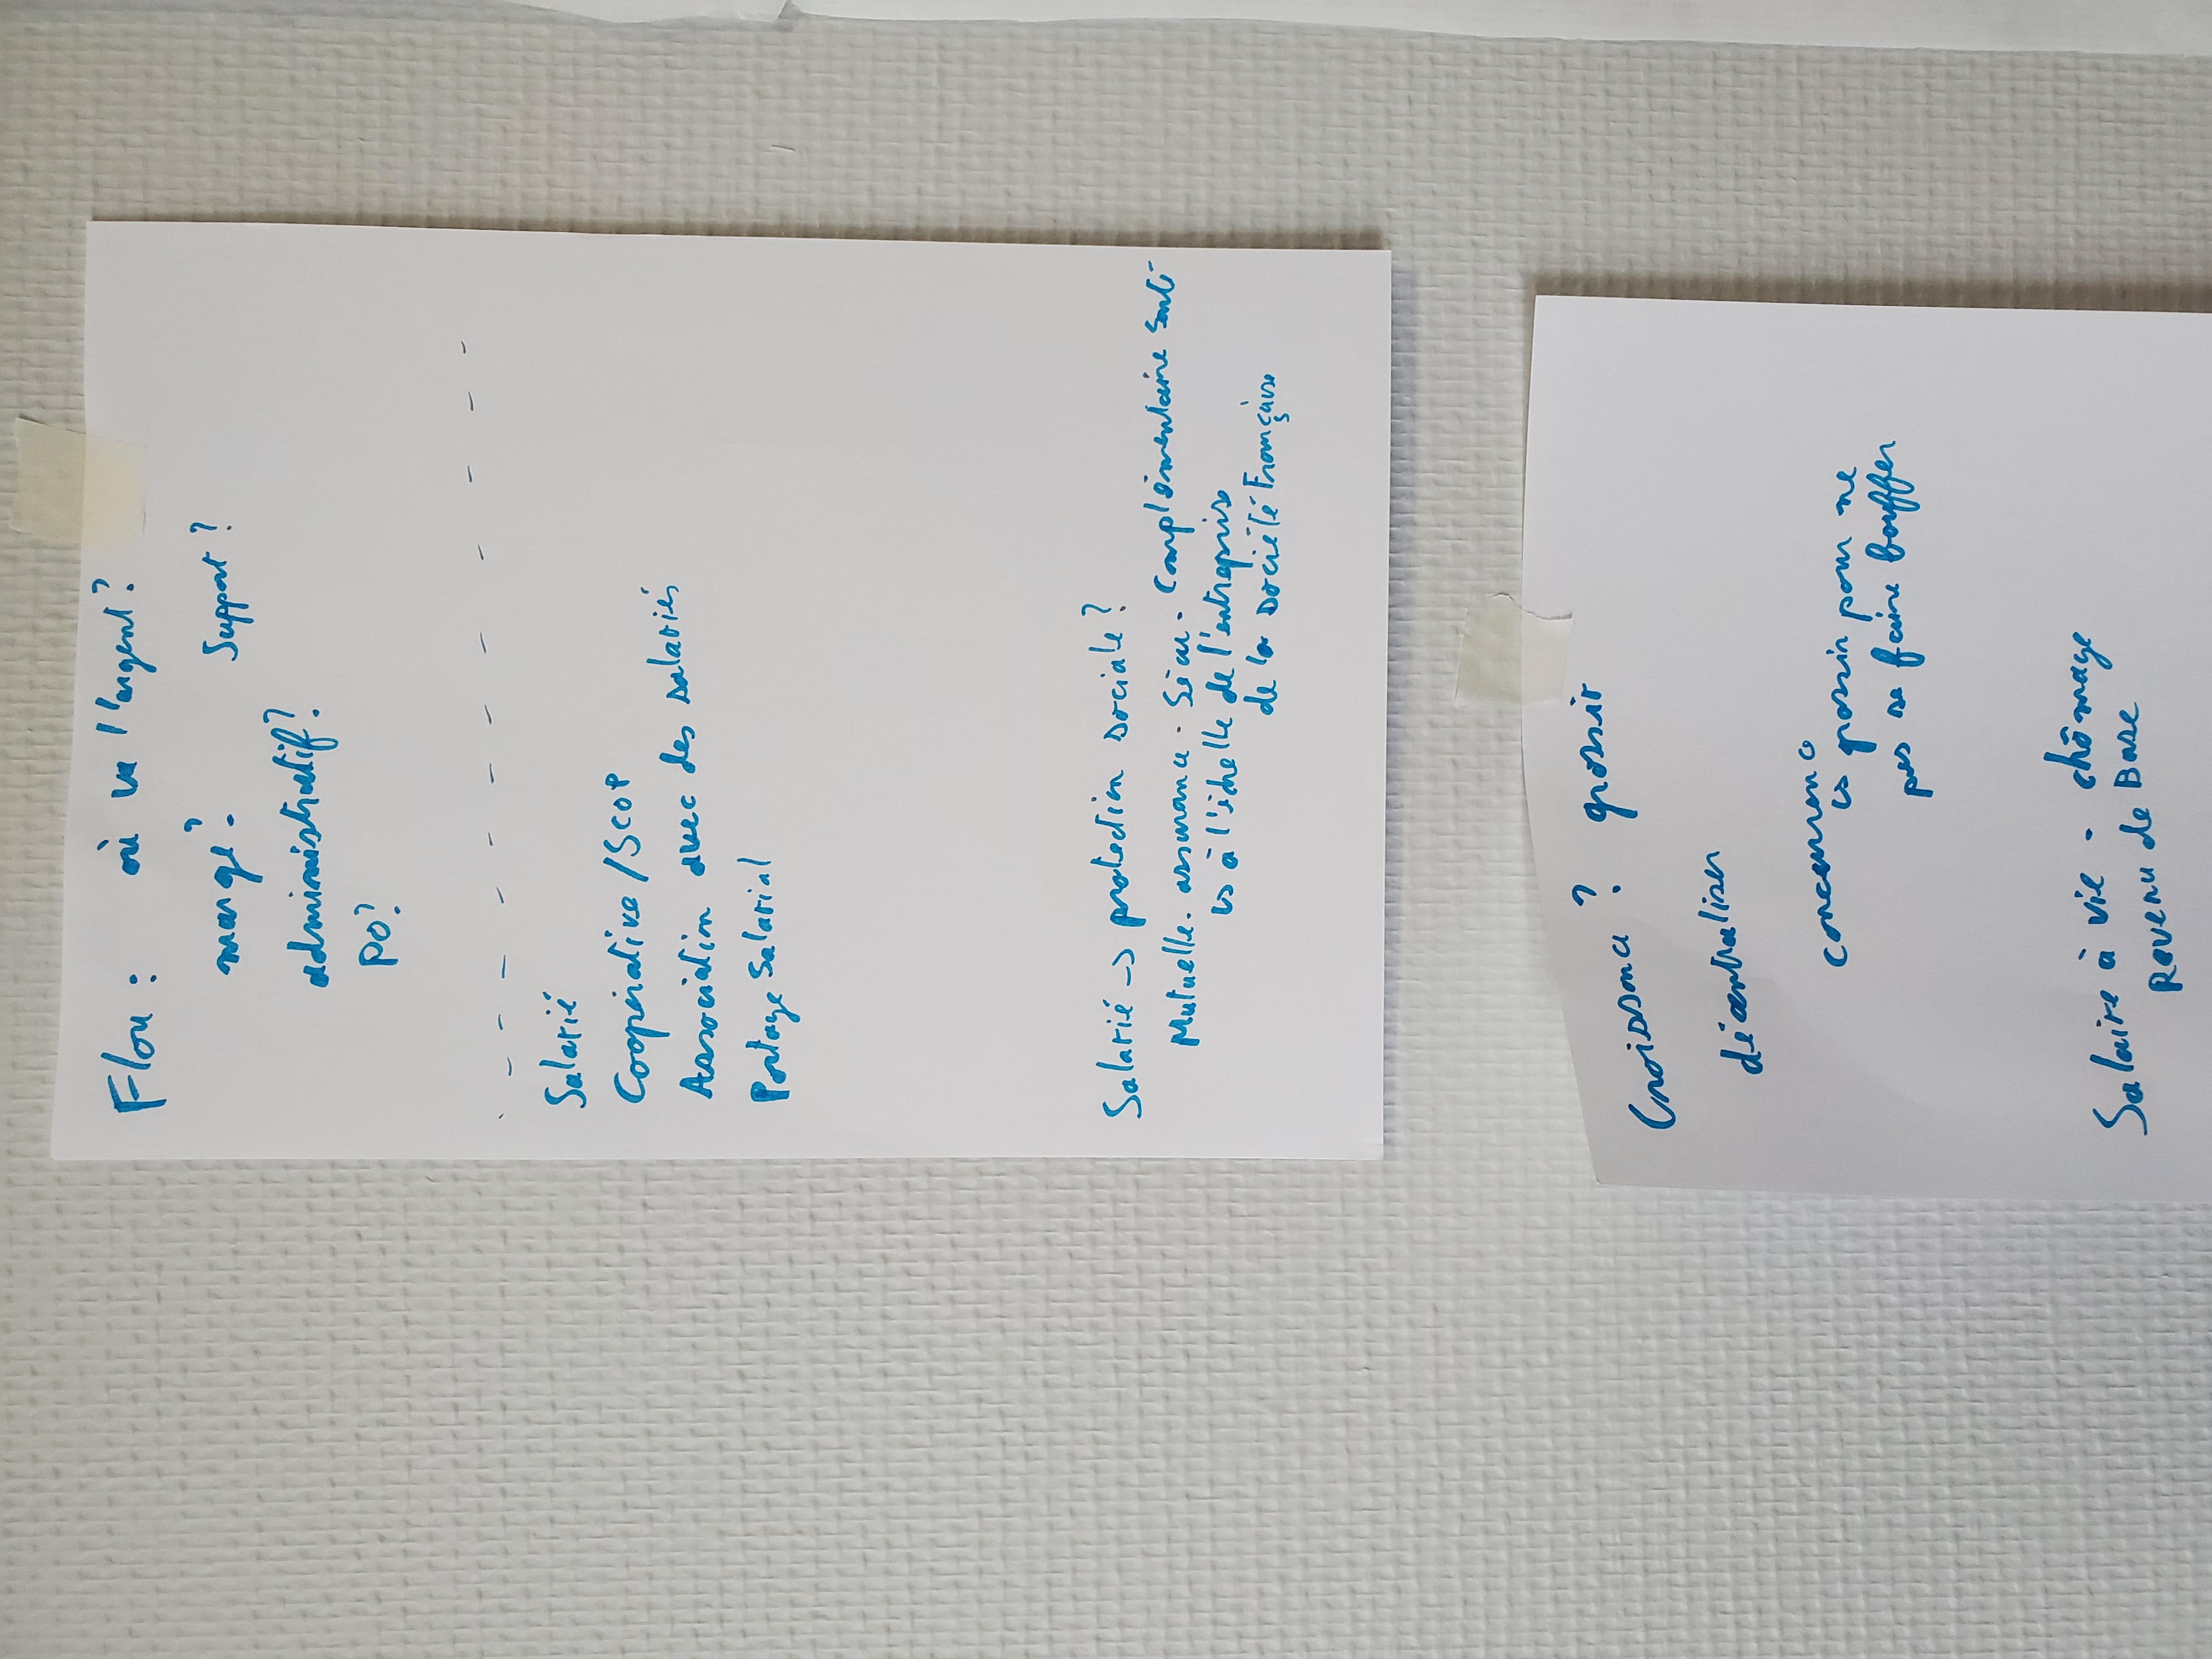 Flou : où va l'argent ?
marge ? Support ?
administratif ?
PO ?
Salarié
Coopérative / SCOP
Association avec des salariés
Portage Salarial
Salarié -> protection sociale ?
Mutuelle. assurance. Sécu. Complémentaire Santé
↳ à l'échelle de l'entreprise
de la société Française
Croissance ? grossir
décentraliser
concurrence
↳ grossir pour ne
pas se faire bouffer
Salaire à vie. chômage
Revenu de Base